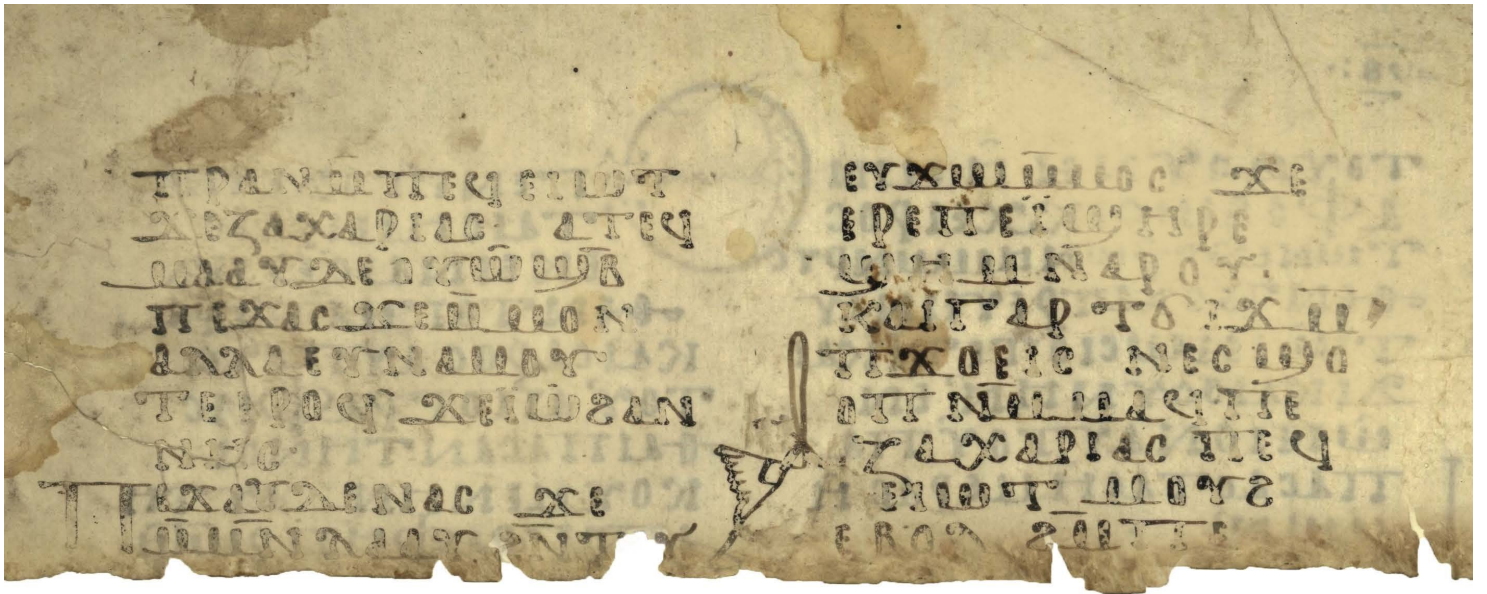 ⲡⲣⲁⲛⲙ̄ⲡⲉϥⲉⲓⲱⲧ
ϫⲉⲍⲁⲭⲁⲣⲓⲁⲥ ⲁⲧⲉϥ
ⲙⲁⲁⲩⲇⲉⲟⲩⲱ̄ϣⲃ̄
ⲡⲉϫⲁⲥϫⲉⲙ̄ⲙⲟⲛ
ⲁⲗⲗⲁⲉⲩⲛⲁⲙⲟⲩ
ⲧⲉⲉⲣⲟϥ ϫⲉⲓ̈ⲱϩⲁⲛ
ⲛⲏⲥ·
ⲡⲉϫⲁⲩⲇⲉⲛⲁⲥ ϫⲉ
ⲙ̄ⲙⲛ̄ⲗⲁⲁⲩ ϩⲛ̄ⲧⲟⲩ
ⲉⲩϫⲱⲙ̄ⲙⲟⲥ ϫⲉ
ⲉⲣⲉⲡⲉⲓ̈ϣⲏⲣⲉ
ϣⲏⲙ ⲛⲁⲣⲟⲩ·
ⲕⲁⲓⲅⲁⲣ ⲧϭⲓϫ ⲙ̄
ⲡϫⲟⲉⲓⲥ ⲛⲉⲥϣⲟ
ⲟⲡ ⲛⲙ̄ⲙⲁϥⲡⲉ
ⲍⲁⲭⲁⲣⲓⲁⲥ ⲡⲉϥ
ⲉⲓⲱⲧ ⲁⲙⲟⲩϩ
ⲉⲃⲟⲗ ϩⲙ̄ⲡⲉ